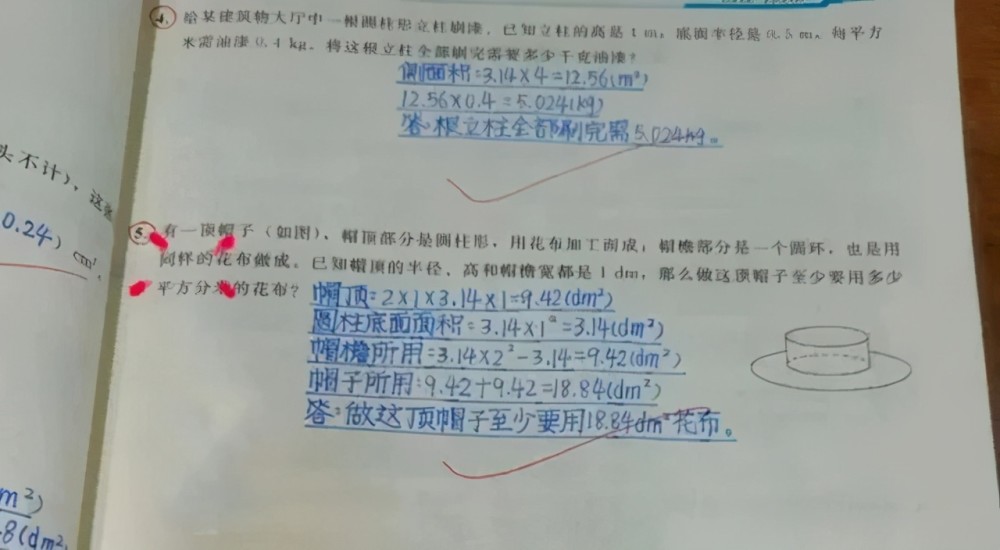 4. 给某建筑物大厅中一根圆柱形立柱刷漆，已知立柱的高是4 m，底面半径是0.5 m。每平方
米需油漆0.4 kg。将这根立柱全部刷完需要多少千克油漆？
侧面积:3.14×4=12.56(m²)
12.56×0.4=5.024(kg)
答:根立柱全部刷完需5.024kg。
头不计)，这张
0.24) cm²，
5. 有一顶帽子（如图），帽顶部分是圆柱形，用花布加工而成；帽檐部分是一个圆环，也是用
同样的花布做成。已知帽顶的半径、高和帽檐宽都是1 dm，那么做这顶帽子至少要用多少
平方分米的花布？
帽顶:2×1×3.14×1=9.42(dm²)
圆柱底面面积:3.14×1²=3.14(dm²)
帽檐所用:3.14×2²-3.14=9.42(dm²)
帽子所用:9.42+9.42=18.84(dm²)
答:做这顶帽子至少要用18.84dm²花布。
m²)
8(dm²